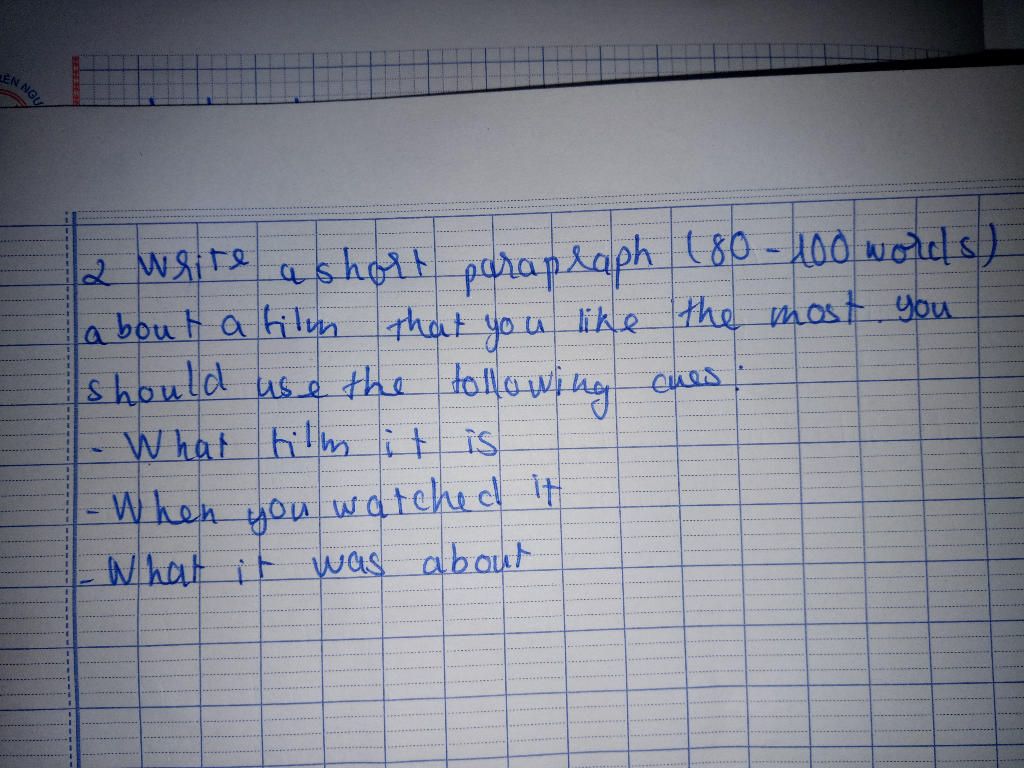 ÊN NGU
2 Write a short paragraph (80 - 100 words)
about a film that you like the most. you
should use the following cues:
- What film it is
- When you watched it
- What it was about